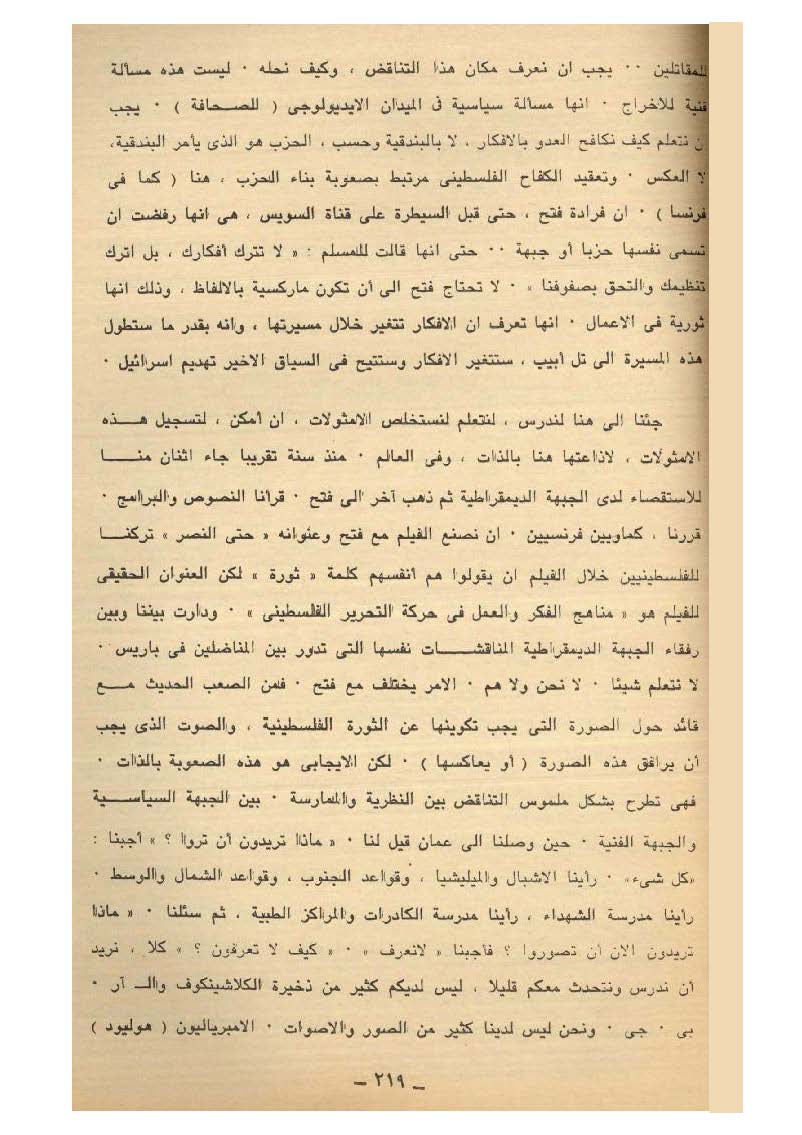 للمقاتلين ٠٠ يجب ان نعرف مكان هذا التناقض ، وكيف نحله ٠ ليست هذه مسألة
فنية للاخراج ٠ انها مسألة سياسية فى الميدان الايديولوجى ( للصـحافة ) ٠ يجب
ان نتعلم كيف نكافح العدو بالافكار ، لا بالبندقية وحسب ، الحزب هو الذى يأمر البندقية،
لا العكس ٠ وتعقيد الكفاح الفلسطينى مرتبط بصعوبة بناء الحزب ، هنا ( كما فى
فرنسا ) ٠ ان فرادة فتح ، حتى قبل السيطرة على قناة السويس ، هى انها رفضت ان
تسمى نفسها حزبا أو جبهة ٠٠ حتى انها قالت للمسلم : « لا تترك أفكارك ، بل اترك
تنظيمك والتحق بصفوفنا » ٠ لا تحتاج فتح الى أن تكون ماركسية بالالفاظ ، وذلك انها
ثورية فى الاعمال ٠ انها تعرف ان الافكار تتغير خلال مسيرتها ، وانه بقدر ما ستطول
هذه المسيرة الى تل أبيب ، ستتغير الافكار وستتيح فى السياق الاخير تهديم اسرائيل ٠
جئنا الى هنا لندرس ، لنتعلم لنستخلص الامثولات ، ان أمكن ، لتسجيل هـــذه
الامثولات ، لاذاعتها هنا بالذات ، وفى العالم ٠ منذ سنة تقريبا جاء اثنان منـــا
للاستقصاء لدى الجبهة الديمقراطية ثم ذهب آخر الى فتح ٠ قرأنا النصوص والبرامج ٠
قررنا ، كماويين فرنسيين ٠ ان نصنع الفيلم مع فتح وعنوانه « حتى النصر » تركنــا
للفلسطينيين خلال الفيلم ان يقولوا هم أنفسهم كلمة « ثورة » لكن العنوان الحقيقى
للفيلم هو « مناهج الفكر والعمل فى حركة التحرير الفلسطينى » ٠ ودارت بيننا وبين
رفقاء الجبهة الديمقراطية المناقشـــات نفسها التى تدور بين المناضلين فى باريس ٠
لا نتعلم شيئا ٠ لا نحن ولا هم ٠ الامر يختلف مع فتح ٠ فمن الصعب الحديث مـــع
قائد حول الصورة التى يجب تكوينها عن الثورة الفلسطينية ، والصوت الذى يجب
أن يرافق هذه الصورة ( أو يعاكسها ) ٠ لكن الايجابى هو هذه الصعوبة بالذات ٠
فهى تطرح بشكل ملموس التناقض بين النظرية والممارسة ٠ بين الجبهة السياســية
والجبهة الفنية ٠ حين وصلنا الى عمان قيل لنا ٠ « ماذا تريدون أن تروا ؟ » أجبنا :
«كل شىء» ٠ رأينا الاشبال والميليشيا ، وقواعد الجنوب ، وقواعد الشمال والوسط ٠
رأينا مدرسة الشهداء ، رأينا مدرسة الكادرات والمراكز الطبية ، ثم سئلنا ٠ « ماذا
تريدون الان أن تصوروا ؟ فأجبنا « لانعرف » ٠ « كيف لا تعرفون ؟ » كلا ، نريد
أن ندرس ونتحدث معكم قليلا ، ليس لديكم كثير من ذخيرة الكلاشينكوف والـ آر ٠
بى ٠ جى ٠ ونحن ليس لدينا كثير من الصور والاصوات ٠ الامبرياليون ( هوليود )
– ٢١٩ –